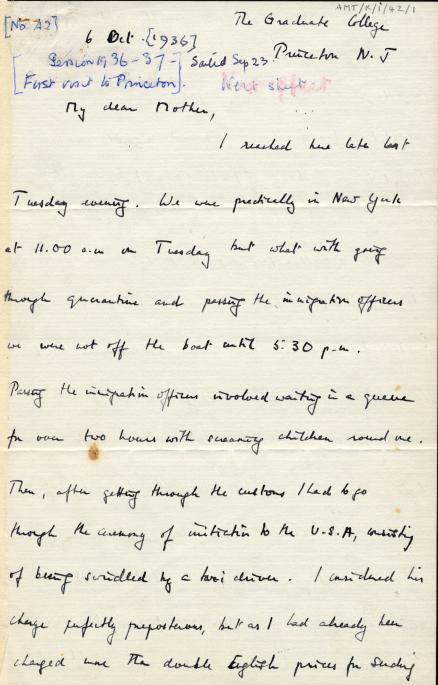 AMT/K/1/42/1
[No. A2]
The Graduate College
6 Oct. [1936]
[Session 1936-37- Sailed Sep 23. Princeton N.J
First visit to Princeton].
My dear Mother,
I reached here late last
Tuesday evening. We were practically in New York
at 11.00 a.m on Tuesday but what with going
through quarantine and passing the immigration officers
we were not off the boat until 5:30 p.m.
Passing the immigration officers involved waiting in a queue
for over two hours with screaming children round me.
Then, after getting through the customs I had to go
through the ceremony of initiation to the U.S.A, consisting
of being swindled by a taxi driver. I considered his
charge perfectly preposterous, but as I had already been
charged more than double English prices for sending